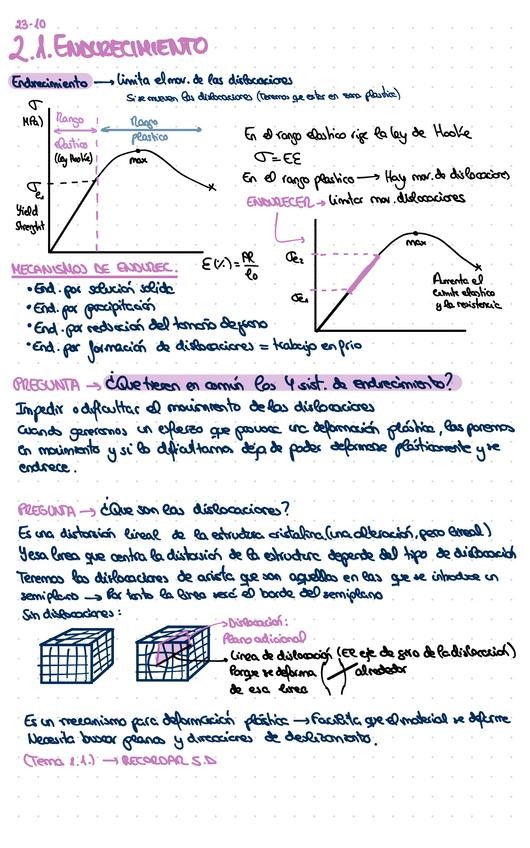 23-10
2.1. ENDURECIMIENTO
Endurecimiento → limita el mov. de las dislocaciones
Si se mueven las dislocaciones (Tenemos que estar en zona plastica)
σ
MPa)
Rango
elastico
(ley Hooke)
Rango
plastico
max
σe1
Yield
Strenght
ε (%) = Δl
l0
En el rango elastico rige la ley de Hooke
σ = Eε
En el rango plastico → Hay mov. de dislocaciones
ENDURECER → limitar mov. dislocaciones
σe2
σe1
max
Aumenta el
limite elastico
y la resistencia
MECANISMOS DE ENDUREC.
• End. por solución solida
• End. por precipitación
• End. por reducción del tamaño de grano
• End. por formación de dislocaciones = trabajo en frio
PREGUNTA → ¿Que tienen en común los 4 sist. de endurecimiento?
Impedir o dificultar el movimiento de las dislocaciones
Cuando generamos un esfuerzo que provoca una deformación plástica, las ponemos
en movimiento y si lo dificultamos deja de poder deformarse plásticamente y se
endurece.
PREGUNTA → ¿Que son las dislocaciones?
Es una distorsión lineal de la estructura cristalina (una alteración, pero lineal)
Y esa linea que centra la distorsión de la estructura depende del tipo de dislocación
Tenemos las dislocaciones de arista que son aquellas en las que se introduce un
semiplano → Por tanto la linea será el borde del semiplano
Sin dislocaciones:
Dislocación:
Plano adicional
Linea de dislocación (El eje de giro de la dislocación)
Porque se deforma alrededor
de esa linea
Es un mecanismo para deformación plástica → Facilita que el material se deforme
Necesita buscar planos y direcciones de deslizamiento.
(Tema 1.1.) → RECORDAR S.D